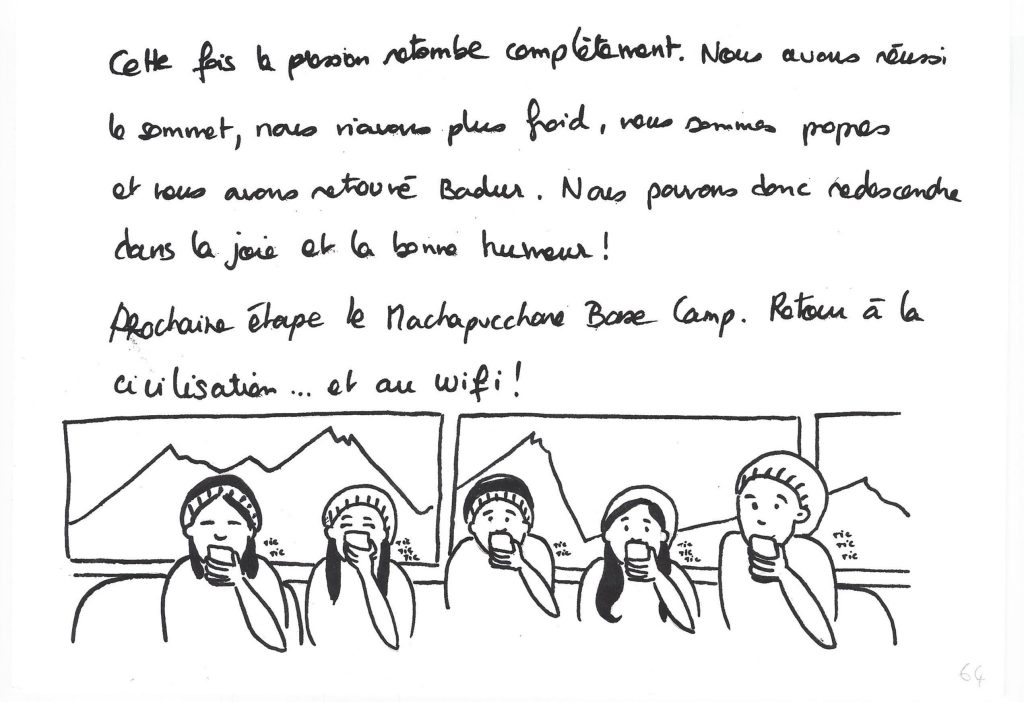 Cette fois la pression retombe complètement. Nous avons réussi
le sommet, nous n'avons plus froid, nous sommes propres
et nous avons retrouvé Badur. Nous pouvons donc redescendre
dans la joie et la bonne humeur !
Prochaine étape le Machapucchare Base Camp. Retour à la
civilisation... et au wifi !
tic
tic
tic
tic
tic
tic
tic
tic
tic
tic
tic
tic
tic
64